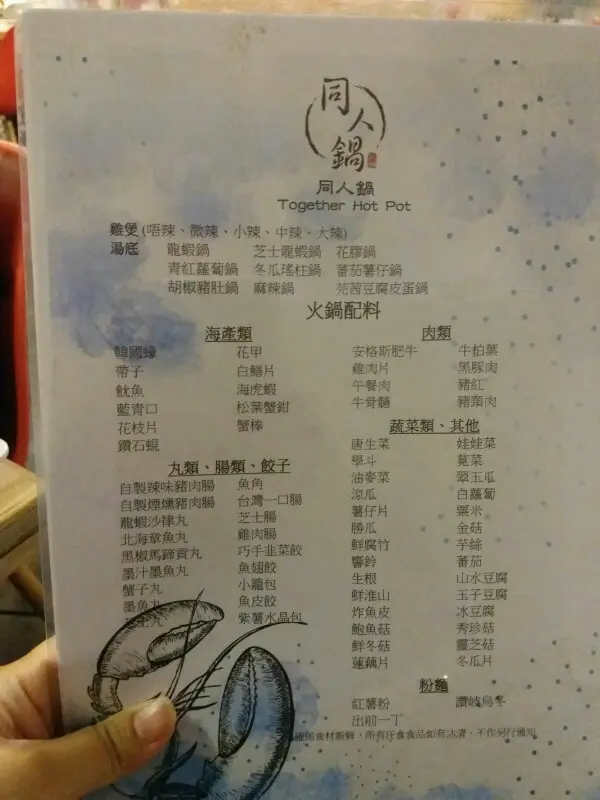 同人鍋
同人鍋
Together Hot Pot
雞煲 (唔辣、微辣、小辣、中辣、大辣)
湯底 龍蝦鍋 芝士龍蝦鍋 花膠鍋
青紅蘿蔔鍋 冬瓜瑤柱鍋 蕃茄薯仔鍋
胡椒豬肚鍋 麻辣鍋 芫茜豆腐皮蛋鍋
火鍋配料
海產類
韓國蠔 花甲
帶子 白鱔片
魷魚 海虎蝦
藍青口 松葉蟹鉗
花枝片 蟹棒
鑽石蜆
丸類、腸類、餃子
自製辣味豬肉腸 魚角
自製煙燻豬肉腸 台灣一口腸
龍蝦沙律丸 芝士腸
北海章魚丸 雞肉腸
黑椒馬蹄貢丸 巧手韭菜餃
墨汁墨魚丸 魚翅餃
蟹子丸 小籠包
墨魚丸 魚皮餃
紫薯水晶包
肉類
安格斯肥牛 牛柏葉
雞肉片 黑豚肉
午餐肉 豬紅
牛骨髓 豬頸肉
蔬菜類、其他
唐生菜 娃娃菜
學斗 莧菜
油麥菜 翠玉瓜
涼瓜 白蘿蔔
薯仔片 粟米
勝瓜 金菇
鮮腐竹 芋絲
響鈴 蕃茄
生根 山水豆腐
鮮淮山 玉子豆腐
炸魚皮 冰豆腐
鮑魚菇 秀珍菇
鮮冬菇 靈芝菇
蓮藕片 冬瓜片
粉麵
紅薯粉 讚岐烏冬
出前一丁
確保食材新鮮，所有任食食品如有沽清，不作另行通知